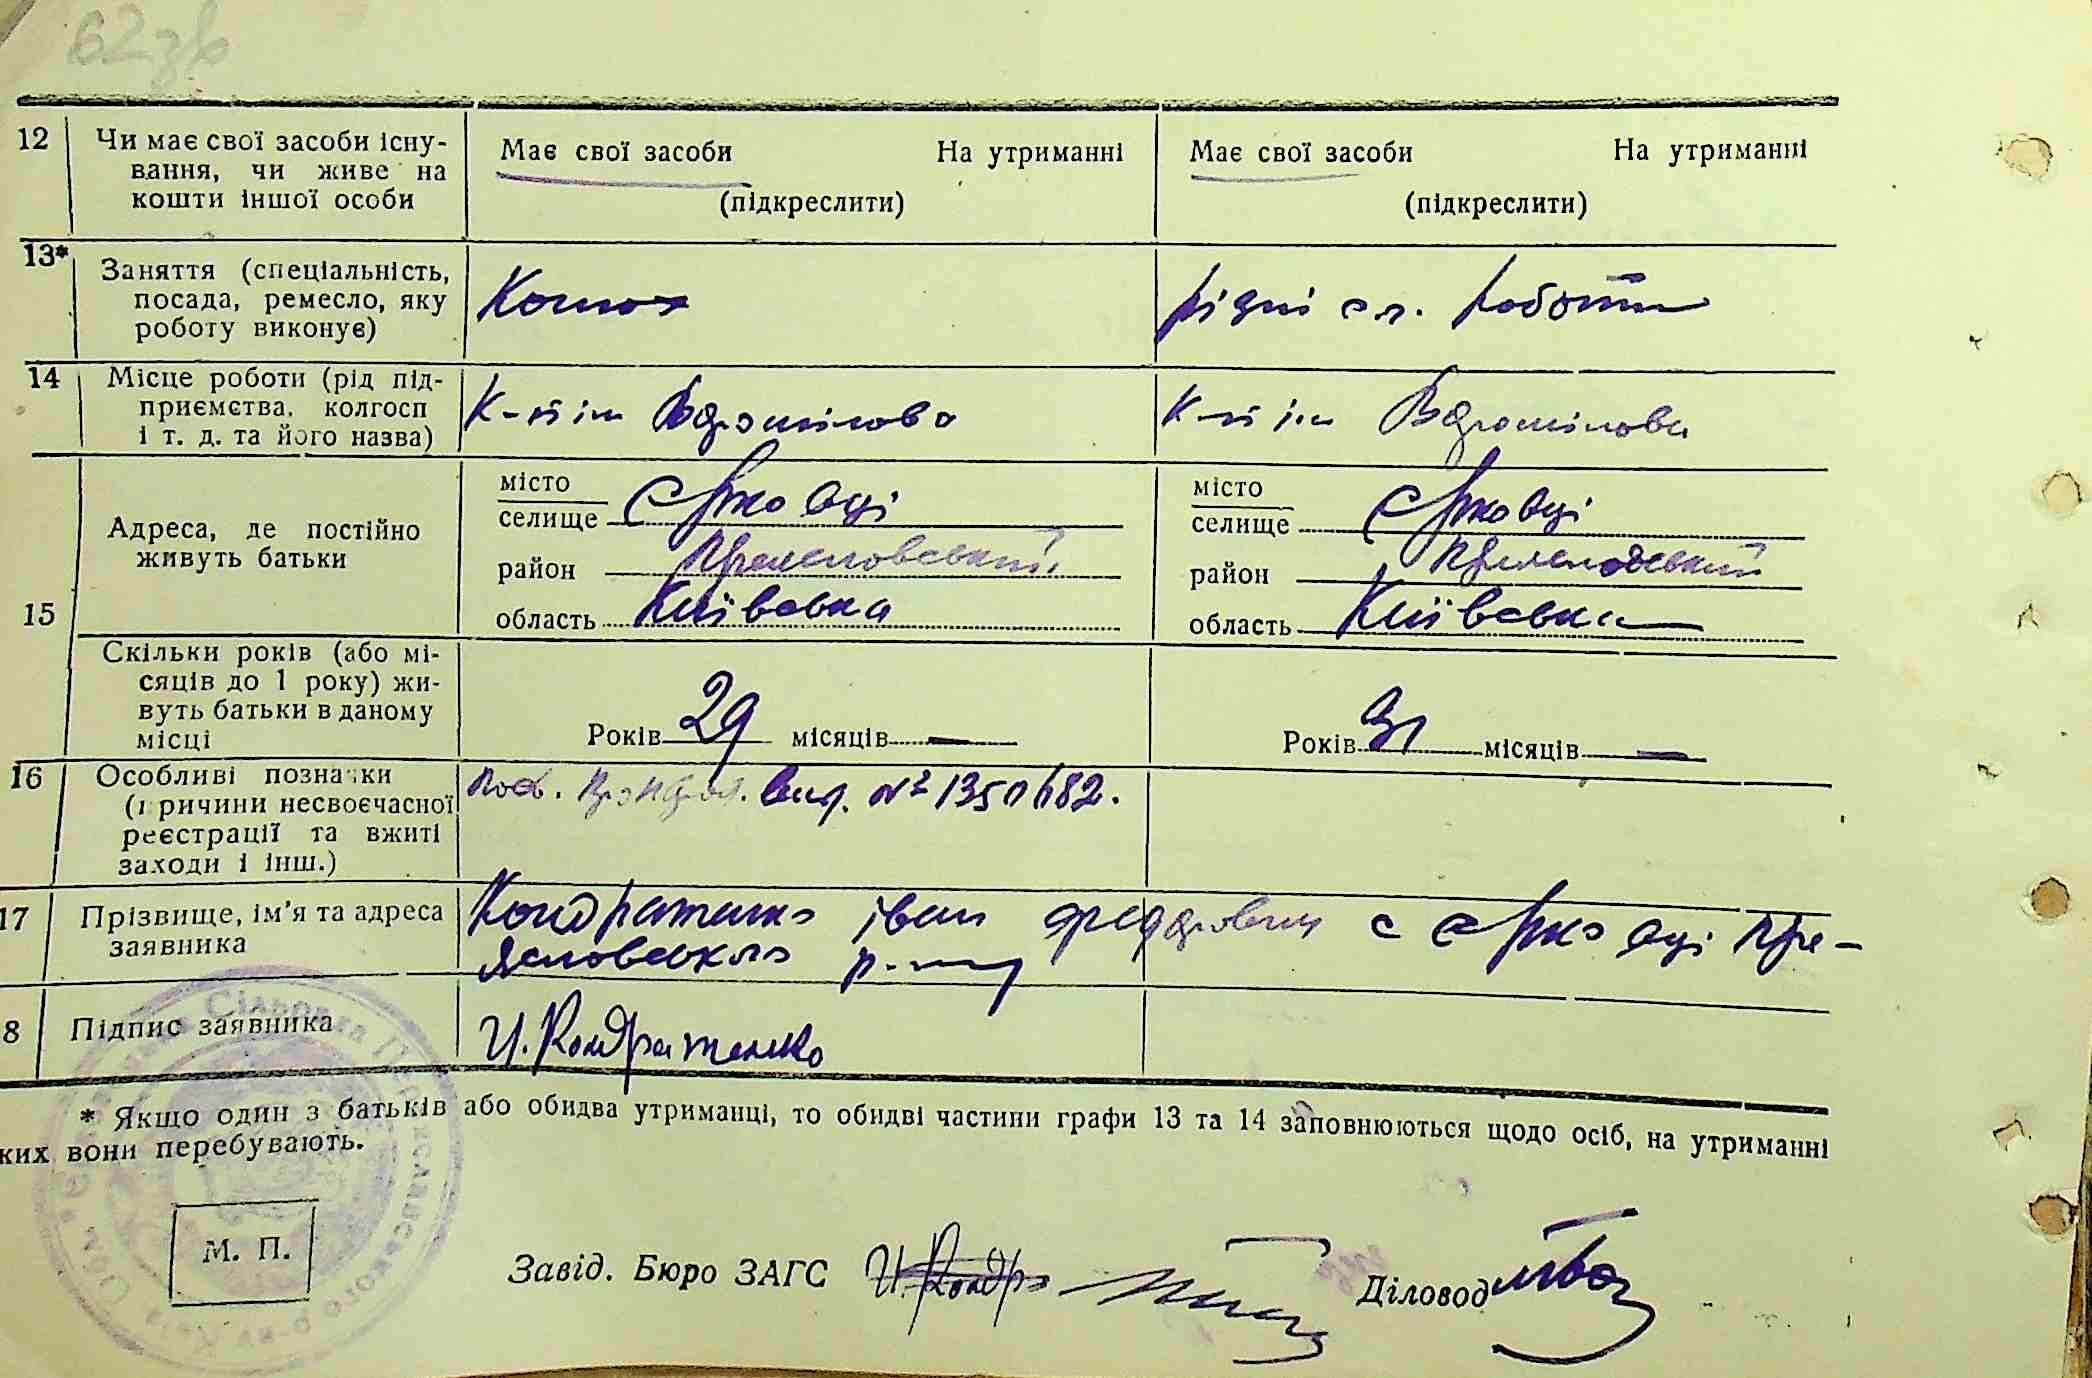 62зв
12 Чи має свої засоби існу-
вання, чи живе на
кошти іншої особи
Має свої засоби На утриманні
(підкреслити)
Має свої засоби На утриманні
(підкреслити)
13* Заняття (спеціальність,
посада, ремесло, яку
роботу виконує)
Конюх
різні с.г. роботи
14 Місце роботи (рід під-
приємства, колгосп
і т. д. та його назва)
К-п ім Ворошілова
К-п ім Ворошілова
15 Адреса, де постійно
живуть батьки
місто
селище Єрковці
район
область Київська
місто
селище Єрковці
район
область Київська
Скільки років (або мі-
сяців до 1 року) жи-
вуть батьки в даному
місці
Років 29 місяців —
Років 31 місяців —
16 Особливі позначки
(причини несвоєчасної
реєстрації та вжиті
заходи і інш.)
№ 1350682.
17 Прізвище, ім'я та адреса
заявника
Кондратенко іван с Єрковці Пре-
яславського р-ну
8 Підпис заявника
И. Кондратенко
* Якщо один з батьків або обидва утриманці, то обидві частини графи 13 та 14 заповнюються щодо осіб, на утриманні
ких вони перебувають.
М. П.
Завід. Бюро ЗАГС И. Кондра
Діловод